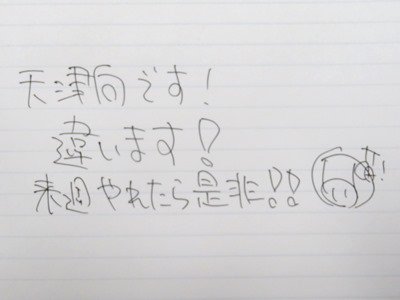 天津向です!
違います!
来週やれたら是非!!